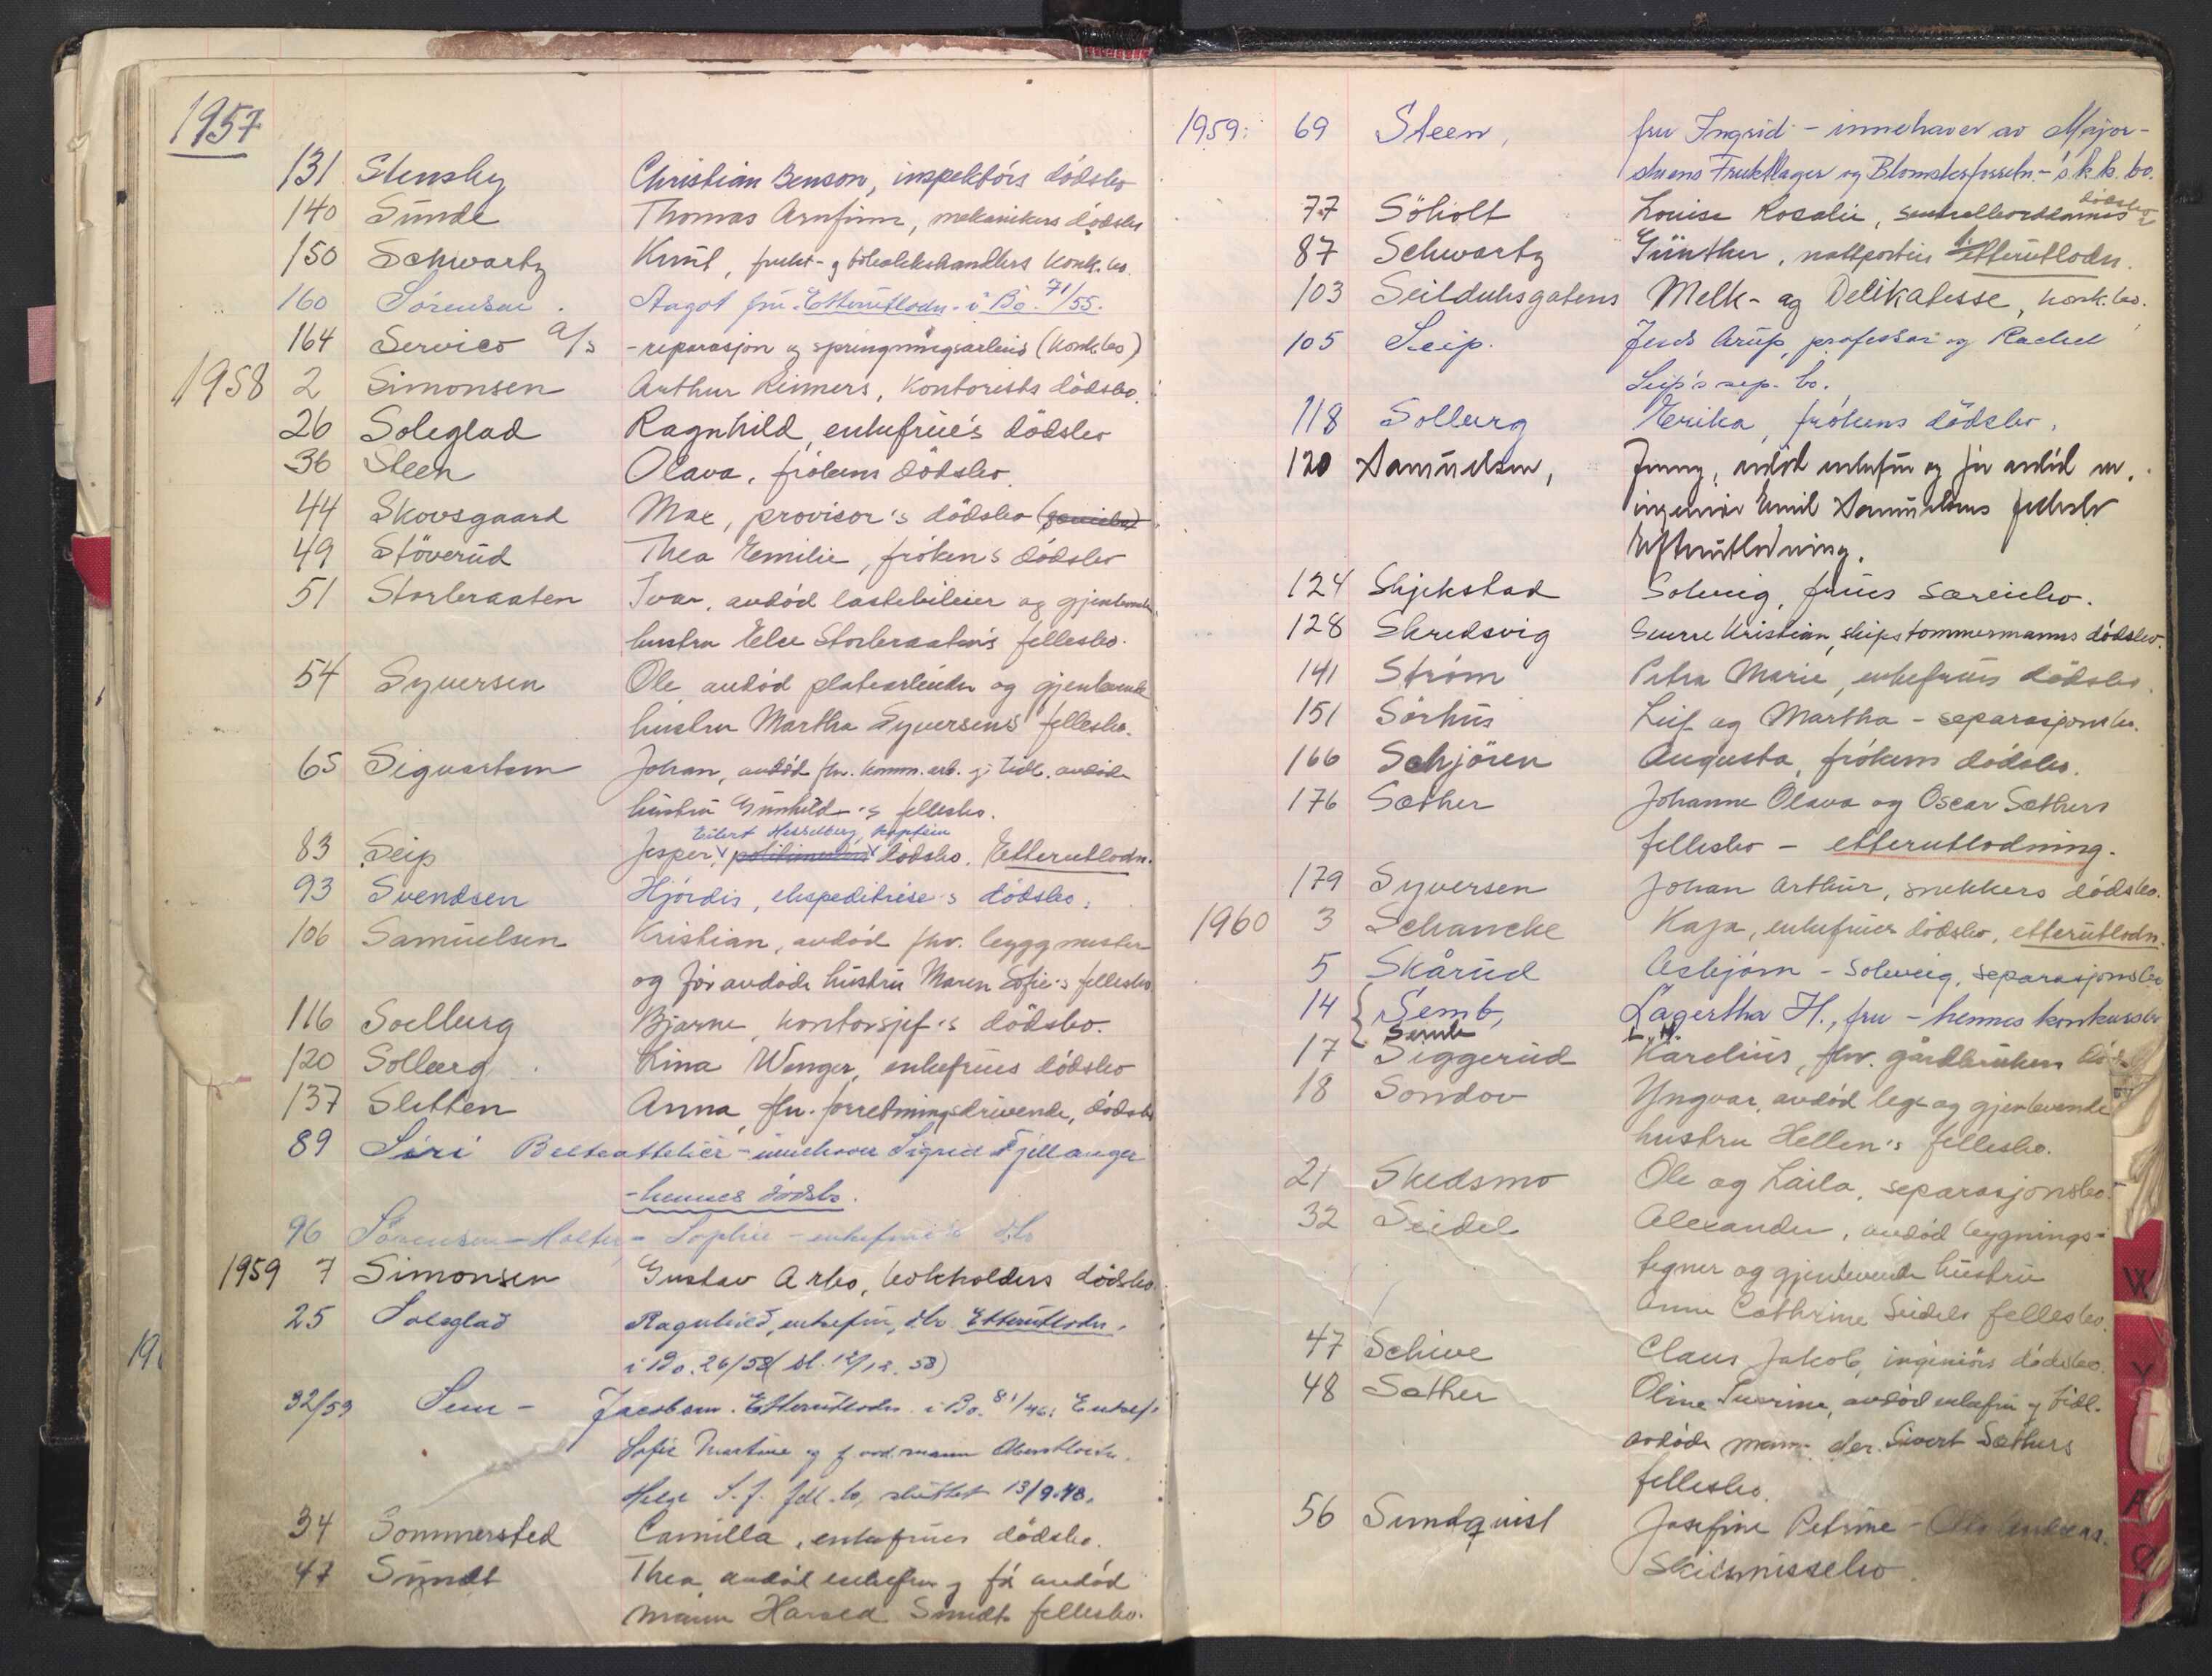 1957
131 Stensby Christian Benson, inspektörs dödsbo
140 Sunde Thomas Arnfinn, mekanikers dödsbo
150 Schwartz Knut, frukt- og tobakkshandlers konk.bo.
160 Sörensen. Aagot fru. Etterutlodn. i Bo. 71/55.
164 Servico A/s - reparasjon og sprengningsarbeid (konk.bo)
1958 2 Simonsen Arthur Reimers, kontorists dödsbo.
26 Soleglad Ragnhild, enkefrue's dödsbo
36 Steen Olava, frökens dödsbo.
44 Skovsgaard Max, provisor's dödsbo
49 Stöverud Thea Emilie, fröken's dödsbo
51 Storbraaten Ivar, avdöd lastebileier og gjenlevende
hustru Else Storbraaten's fellesbo.
54 Syversen Ole avdöd platearbeider og gjenlevende
hustru Martha Syversens fellesbo.
65 Sigvartsen Johan, avdöd fhv. komm.arb. og tidl. avdöde
hustru Gunhild 's fellesbo.
Eilert Hesselberg, kaptein
83 Seip Jesper, dödsbo. Etterutlodn.
93 Svendsen Hjördis, ekspeditrise's dödsbo.
106 Samuelsen Kristian, avdöd fhv. byggmester
og för avdöde hustru Maren Sofie's fellesbo
116 Soelberg Bjarne, kontorsjef's dödsbo.
120 Solberg. Lina Wenger, enkefrues dödsbo
137 Sletten Anna, fhv. forretningsdrivende, dödsbo
89 Siri Belteattelier - innehaver Sigrid Fjellanger
- hennes dödsbo.
96 Sörensen-Holter - Sophie - enkefrue's dbo
1959 7 Simonsen Gustav Arbo, bokholders dödsbo.
25 Soleglad Ragnhild, enkefru, dbo. Etterutlodn.
i Bo. 26/58 (sl. 12/12. 58)
32/59 Sem - Jacobsen. Etterutlodn. i Bo. 81/46: Enkef.
Sofie Martine og f. avd. mann Oberstløitn.
Helge S.J. fell.bo, sluttet 13/9.48.
34 Sommersted Camilla, enkefrues dödsbo.
47 Sundt Thea, avdöd enkefru og för avdöd
mann Harald Sundts fellesbo.
1959: 69 Steen, fru Ingrid - innehaver av Major-
stuens Fruktlager og Blomsterforretn. - 's k.k. bo.
77 Söholt Louise Rosalie, sentralborddames dödsbo
87 Schwartz Günther, nattportier Etterutlodn.
103 Seilduksgatens Melk- og Delikatesse, konk.bo.
105 Seip. Jens Arup, professor og Rachel
Seip's sep. bo.
118 Solberg Erika, frökens dödsbo.
120 Samuelsen, Jenny, avdöd enkefru og för avdöd m.
ingeniör Emil Samuelsens fellesbo
Efterutlodning.
124 Skjekstad Solveig, frues særeiebo.
128 Skredsvig Sverre Kristian, skipstømmermanns dödsbo.
141 Ström Petra Marie, enkefrues dödsbo.
151 Sörhus Leif og Martha - separasjonsbo.
166 Schjören Augusta, frökens dödsbo.
176 Sæther Johanne Olava og Oscar Sæthers
fellesbo - etterutlodning.
179 Syversen Johan Arthur, snekkers dödsbo.
1960 3 Schancke Kaja, enkefrues dödsbo, etterutlodn.
5 Skårud Asbjørn - Solveig, separasjonsbo
14 { Semb, Lagertha H., fru - hennes konkursbo
Semb L. H.
17 Siggerud Karelius, fhv. gårdbrukers
18 Sondov Yngvar, avdöd lege og gjenlevende
hustru Hellen's fellesbo.
21 Skedsmo Ole og Laila, separasjonsbo.
32 Seidel Alexander, avdöd bygnings-
tegner og gjenlevende hustru
Anne Cathrine Seidels fellesbo.
47 Schive Claus Jakob, ingeniörs dödsbo.
48 Sæther Oline Severine, avdöd enkefru og tidl.
avdöde mann Sivert Sæthers
fellesbo.
56 Sundquist Josefine Petrine -
Skilsmissebo.
196
W
Y
A